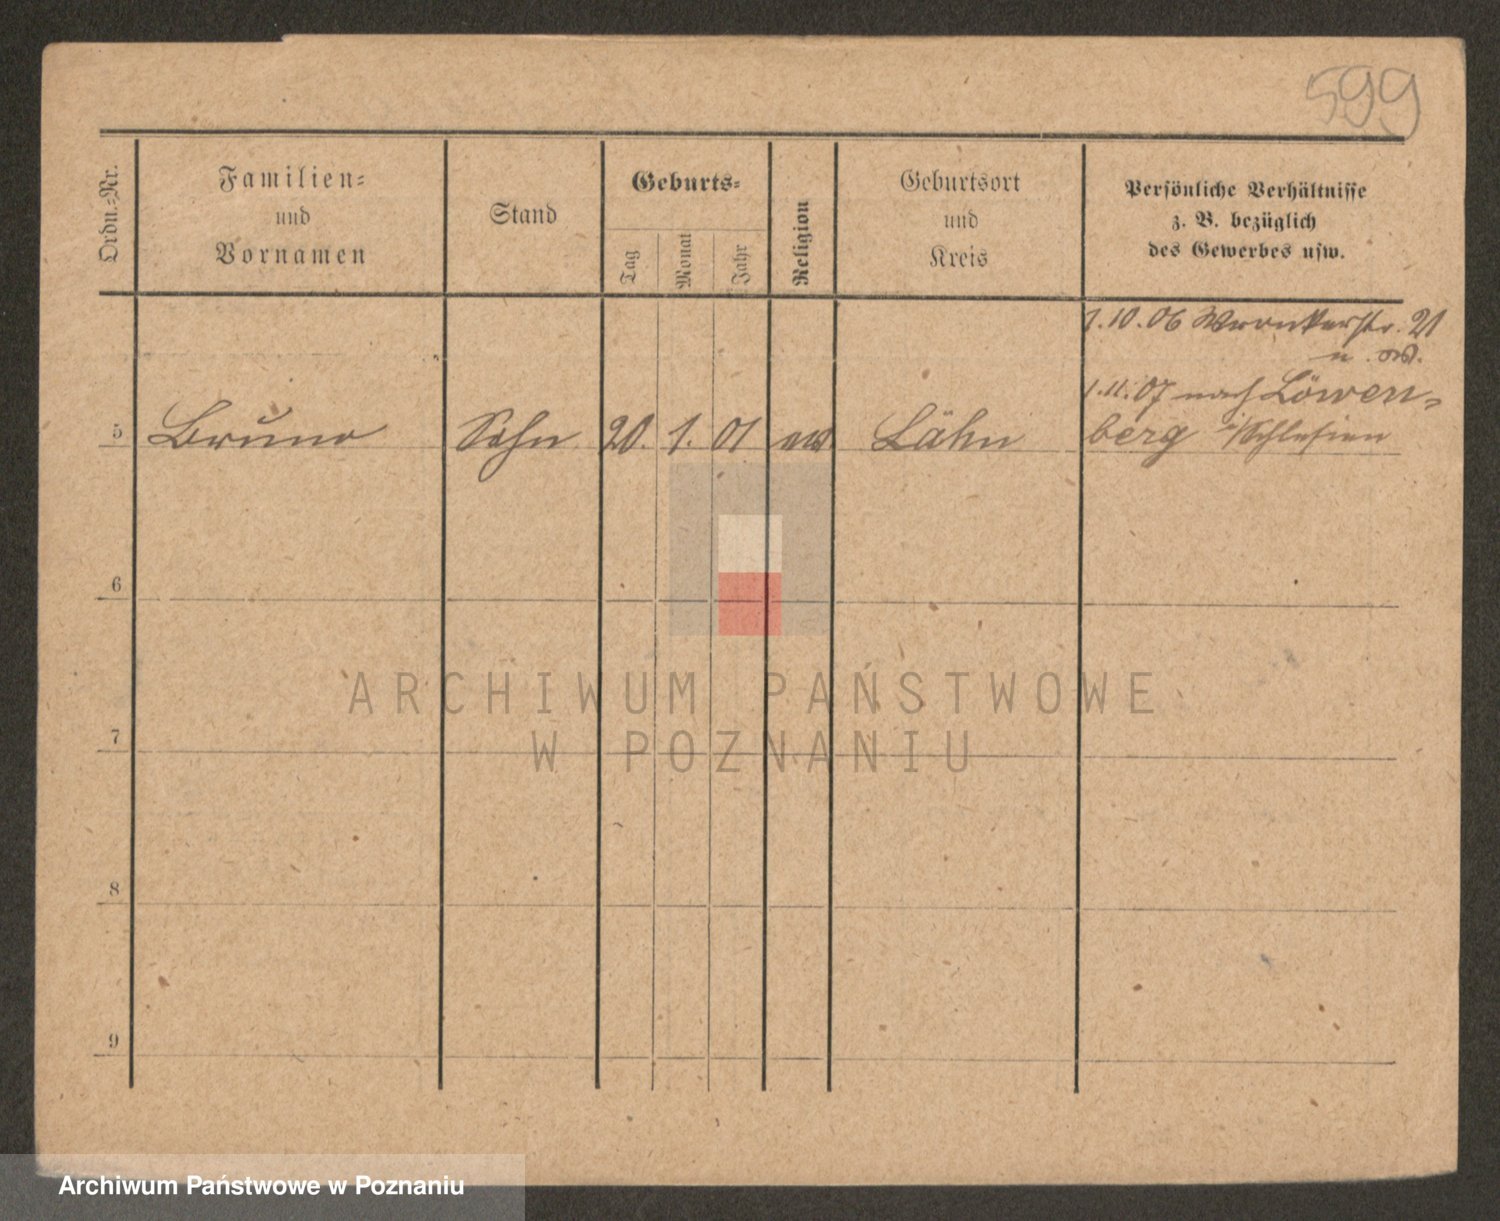 599
Ordn.-Nr.
Familien-
und
Vornamen
Stand
Geburts-
Tag
Monat
Jahr
Religion
Geburtsort
und
Kreis
Persönliche Verhältnisse
z. B. bezüglich
des Gewerbes usw.
1.10.06 Wronkerstr. 21
1.11.07 nach Löwen-
5 Bruno Sohn 20. 1. 01 ev Lähn berg i/Schlesien
6
7
8
9
ARCHIWUM PAŃSTWOWE
W POZNANIU
Archiwum Państwowe w Poznaniu